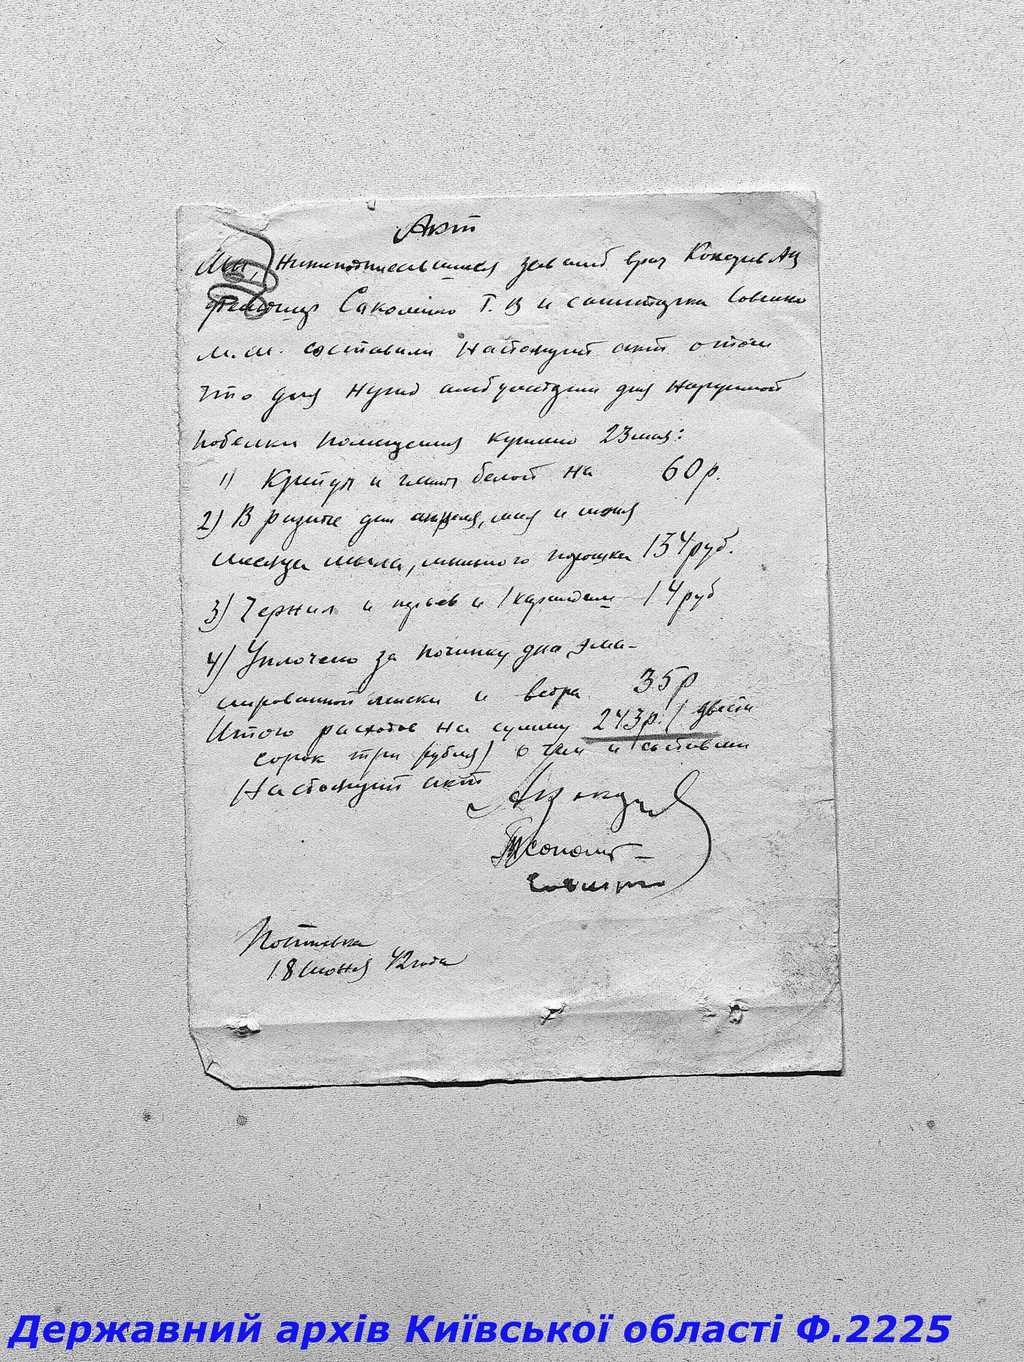 Акт
Мы, нижеподписавшиеся зав амб врач
Т. В и санитарка
М. М. составили настоящий акт о том
что для нужд амбулатории для наружной
побелки помещения куплено 23 мая:
1) Крейды и глины белой на 60 р.
2) В розпе для апреля, мая и июня
месяца мыла, мыльного порошка 134 руб.
3) Чернил и перьев и 1 карандаш 14 руб
4) Уплочено за починку дна эма-
лированной миски и ведра 35 р
Итого расходов на сумму 243 р. (двести
сорок три рубля) о чем и составили
настоящий акт
18 июня 42 года
Державний архів Київської області Ф.2225